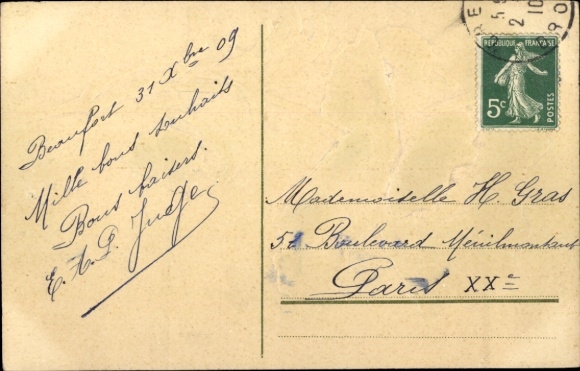 Beaufort 31 Xbre 09
Mille bons souhaits
Bons baisers.
E. A. P. Juge
RÉPUBLIQUE FRANÇAISE
5c
POSTES
Mademoiselle H. Gras
Boulevard Ménilmontant
Paris XXe